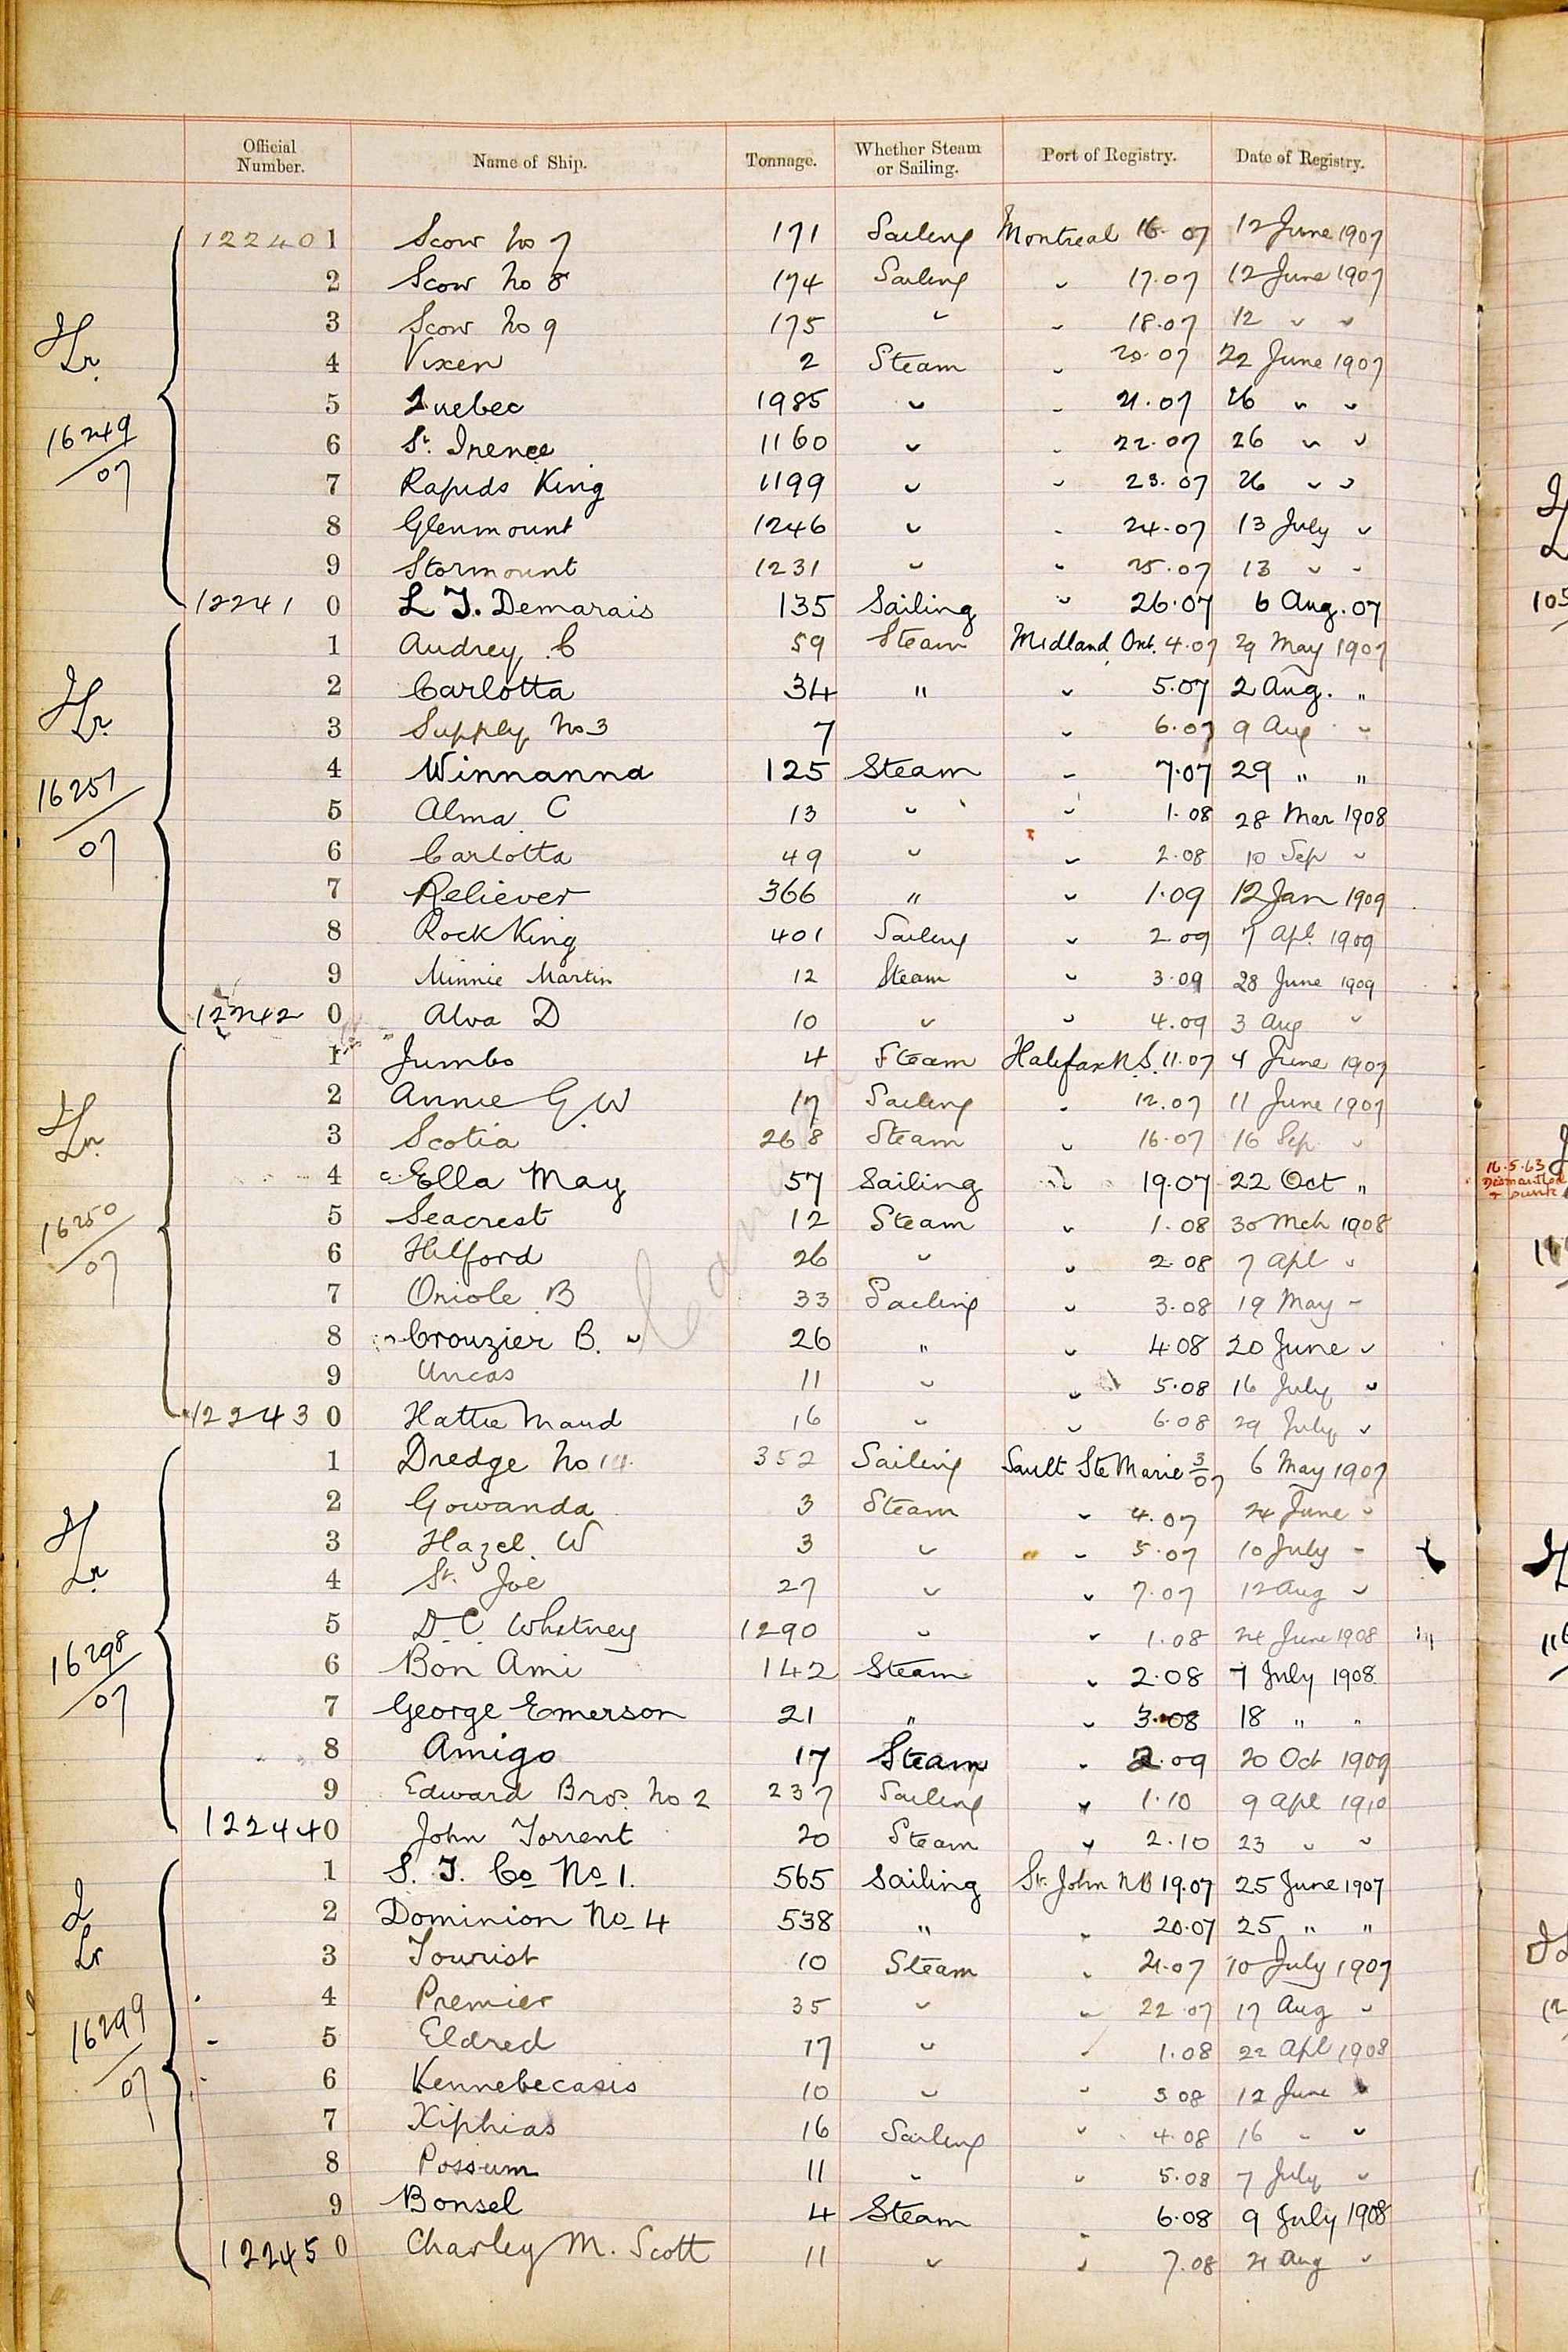 Official Number. Name of Ship. Tonnage. Whether Steam or Sailing. Port of Registry. Date of Registry.
122401 Scow No 7 171 Sailing Montreal 16. 07 12 June 1907
2 Scow No 8 174 Sailing " 17.07 12 June 1907
3 Scow No 9 175 " " 18.07 12 " "
4 Vixen 2 Steam " 20.07 22 June 1907
5 Quebec 1985 " " 21.07 26 " "
6 St. Irenee 1160 " " 22.07 26 " "
7 Rapids King 1199 " " 23.07 26 " "
8 Glenmount 1246 " " 24.07 13 July "
9 Stormount 1231 " " 25.07 13 " "
122410 L J. Demarais 135 Sailing " 26.07 6 Aug. 07
1 Audrey C 59 Steam Midland Ont. 4.07 29 May 1907
2 Carlotta 34 " " 5.07 2 Aug. "
3 Supply No 3 7 " 6.07 9 Aug "
4 Winnanna 125 Steam " 7.07 29 " "
5 Alma C 13 " " 1.08 28 Mar 1908
6 Carlotta 49 " " 2.08 10 Sep "
7 Reliever 366 " " 1.09 12 Jan 1909
8 Rock King 401 Sailing " 2.09 7 Apl. 1909
9 Minnie Martin 12 Steam " 3.09 28 June 1909
122420 Alva D 10 " " 4.09 3 Aug "
1 Jumbo 4 Steam Halifax N.S. 11.07 4 June 1907
2 Annie G. W 17 Sailing " 12.07 11 June 1907
3 Scotia 268 Steam " 16.07 16 Sep "
4 Ella May 57 Sailing " 19.07 22 Oct "
5 Seacrest 12 Steam " 1.08 30 Mch 1908
6 Hilford 26 " " 2.08 7 Apl "
7 Oriole B 33 Sailing " 3.08 19 May "
8 Crouzier B. 26 " " 4.08 20 June "
9 Uncas 11 " " 5.08 16 July "
122430 Hattie Maud 16 " " 6.08 29 July "
1 Dredge No 352 Sailing Sault Ste Marie 3/07 6 May 1907
2 Gowanda 3 Steam " 4.07 24 June "
3 Hazel W 3 " " 5.07 10 July "
4 St. Joe 27 " " 7.07 12 Aug "
5 D. C. Whitney 1290 " " 1.08 24 June 1908
6 Bon Ami 142 Steam " 2.08 7 July 1908
7 George Emerson 21 " " 3.08 18 " "
8 Amigo 17 Steam " 2.09 20 Oct 1909
9 Edward Bros. No 2 237 Sailing " 1.10 9 Apl 1910
122440 John Torrent 20 Steam " 2.10 23 " "
1 S. T. Co No 1. 565 Sailing St. John NB 19.07 25 June 1907
2 Dominion No 4 538 " " 20.07 25 " "
3 Tourist 10 Steam " 21.07 10 July 1907
4 Premier 35 " " 22.07 17 Aug "
5 Eldred 17 " " 1.08 22 Apl 1908
6 Kennebecasis 10 " " 3.08 12 June "
7 Xiphias 16 Sailing " 4.08 16 " "
8 Possum 11 " " 5.08 7 July "
9 Bonsel 4 Steam " 6.08 9 July 1908
122450 Charley M. Scott 11 " " 7.08 21 Aug "
Lr.
16249/07
Lr.
16251/07
Lr.
16250/07
Lr
16298/07
Lr
16299/07
16.5.63
Dismantled